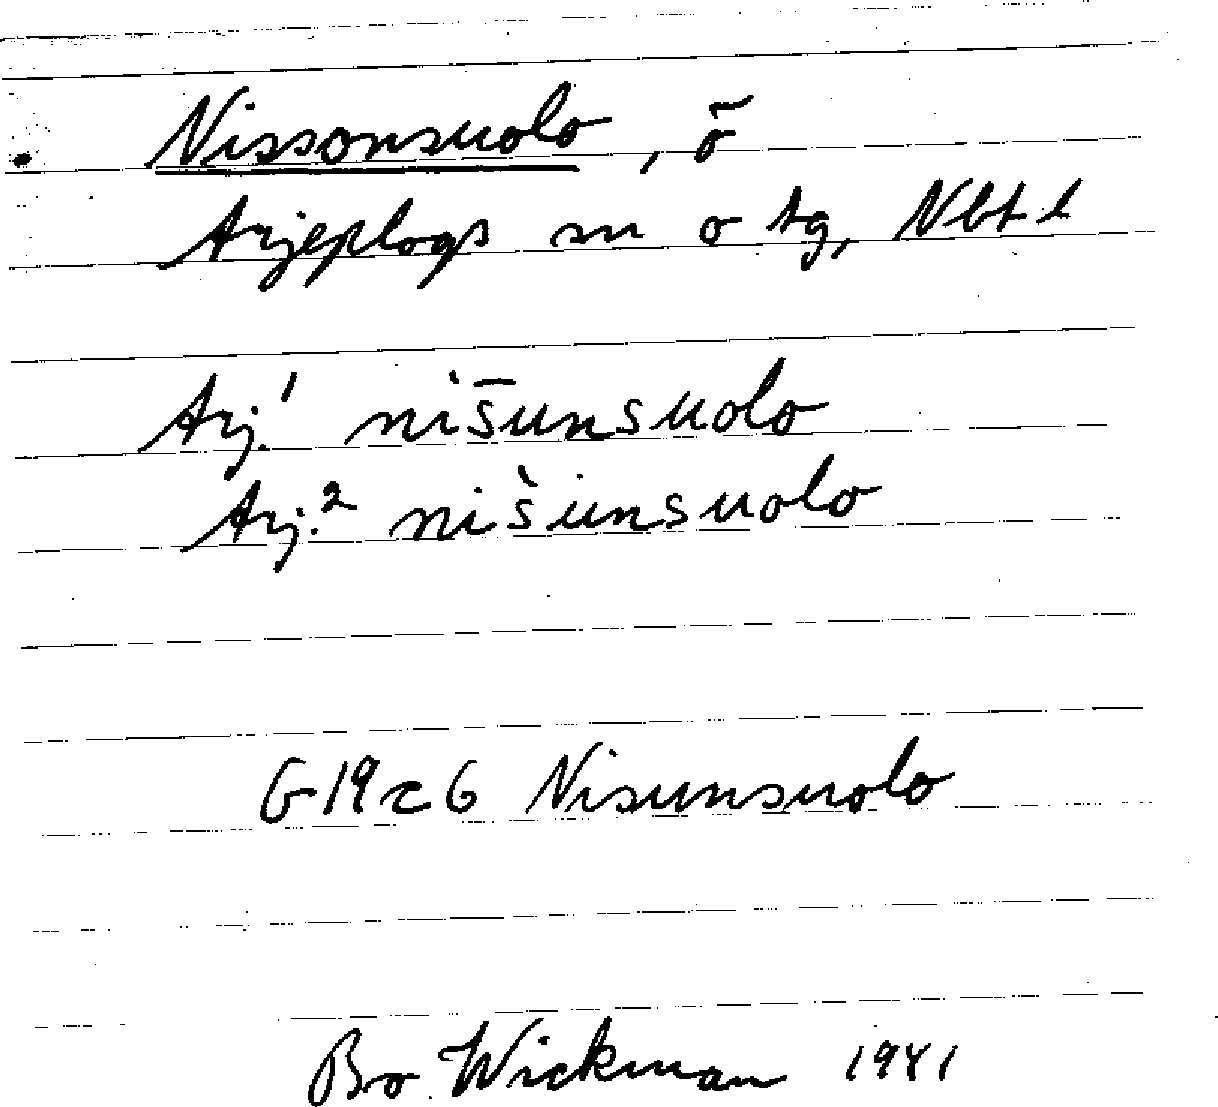 Nissonsuolo, ö
Arjeplogs sn o tg, Nbt l
Arj.¹ nìs̄unsuolo
Arj.² nis̀unsuolo
G 19 c 6 Nisunsuolo
Bo Wickman 1941